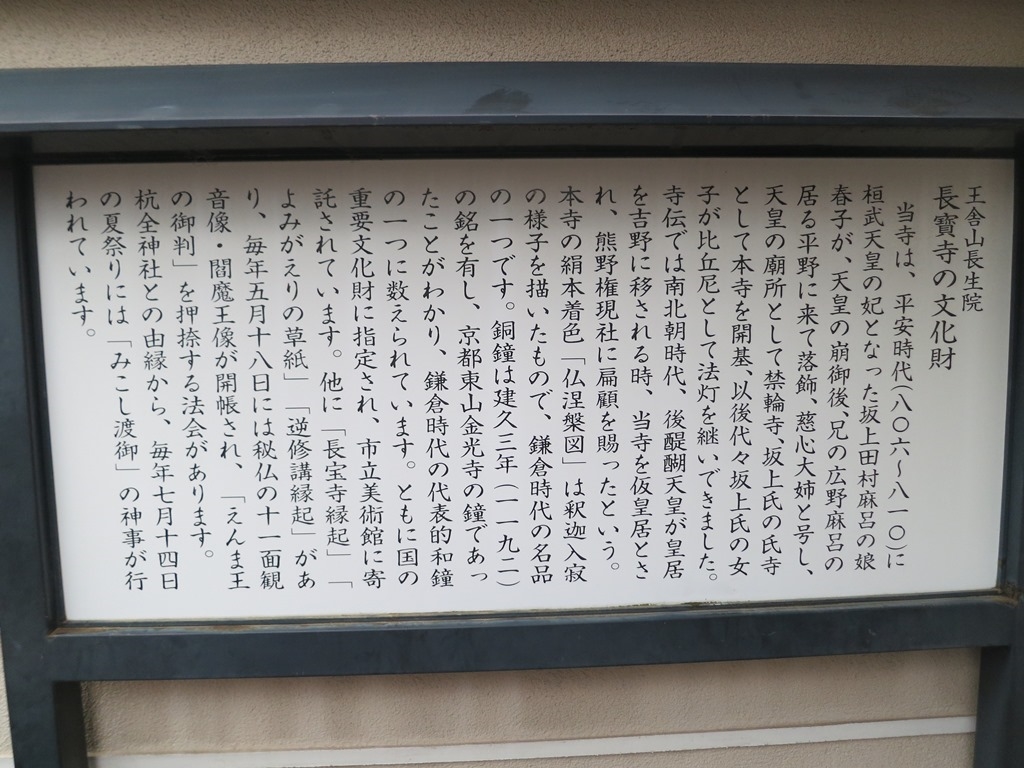 王舎山長生院
長寶寺の文化財
当寺は、平安時代(八〇六~八一〇)に
桓武天皇の妃となった坂上田村麻呂の娘
春子が、天皇の崩御後、兄の広野麻呂の
居る平野に来て落飾、慈心大姉と号し、
天皇の廟所として禁輪寺、坂上氏の氏寺
として本寺を開基、以後代々坂上氏の女
子が比丘尼として法灯を継いできました。
寺伝では南北朝時代、後醍醐天皇が皇居
を吉野に移される時、当寺を仮皇居とさ
れ、熊野権現社に扁顧を賜ったという。
本寺の絹本着色「仏涅槃図」は釈迦入寂
の様子を描いたもので、鎌倉時代の名品
の一つです。銅鐘は建久三年(一一九二)
の銘を有し、京都東山金光寺の鐘であっ
たことがわかり、鎌倉時代の代表的和鐘
の一つに数えられています。ともに国の
重要文化財に指定され、市立美術館に寄
託されています。他に「長宝寺縁起」「
よみがえりの草紙」「逆修講縁起」があ
り、毎年五月十八日には秘仏の十一面観
音像・閻魔王像が開帳され、「えんま王
の御判」を押捺する法会があります。
杭全神社との由縁から、毎年七月十四日
の夏祭りには「みこし渡御」の神事が行
われています。